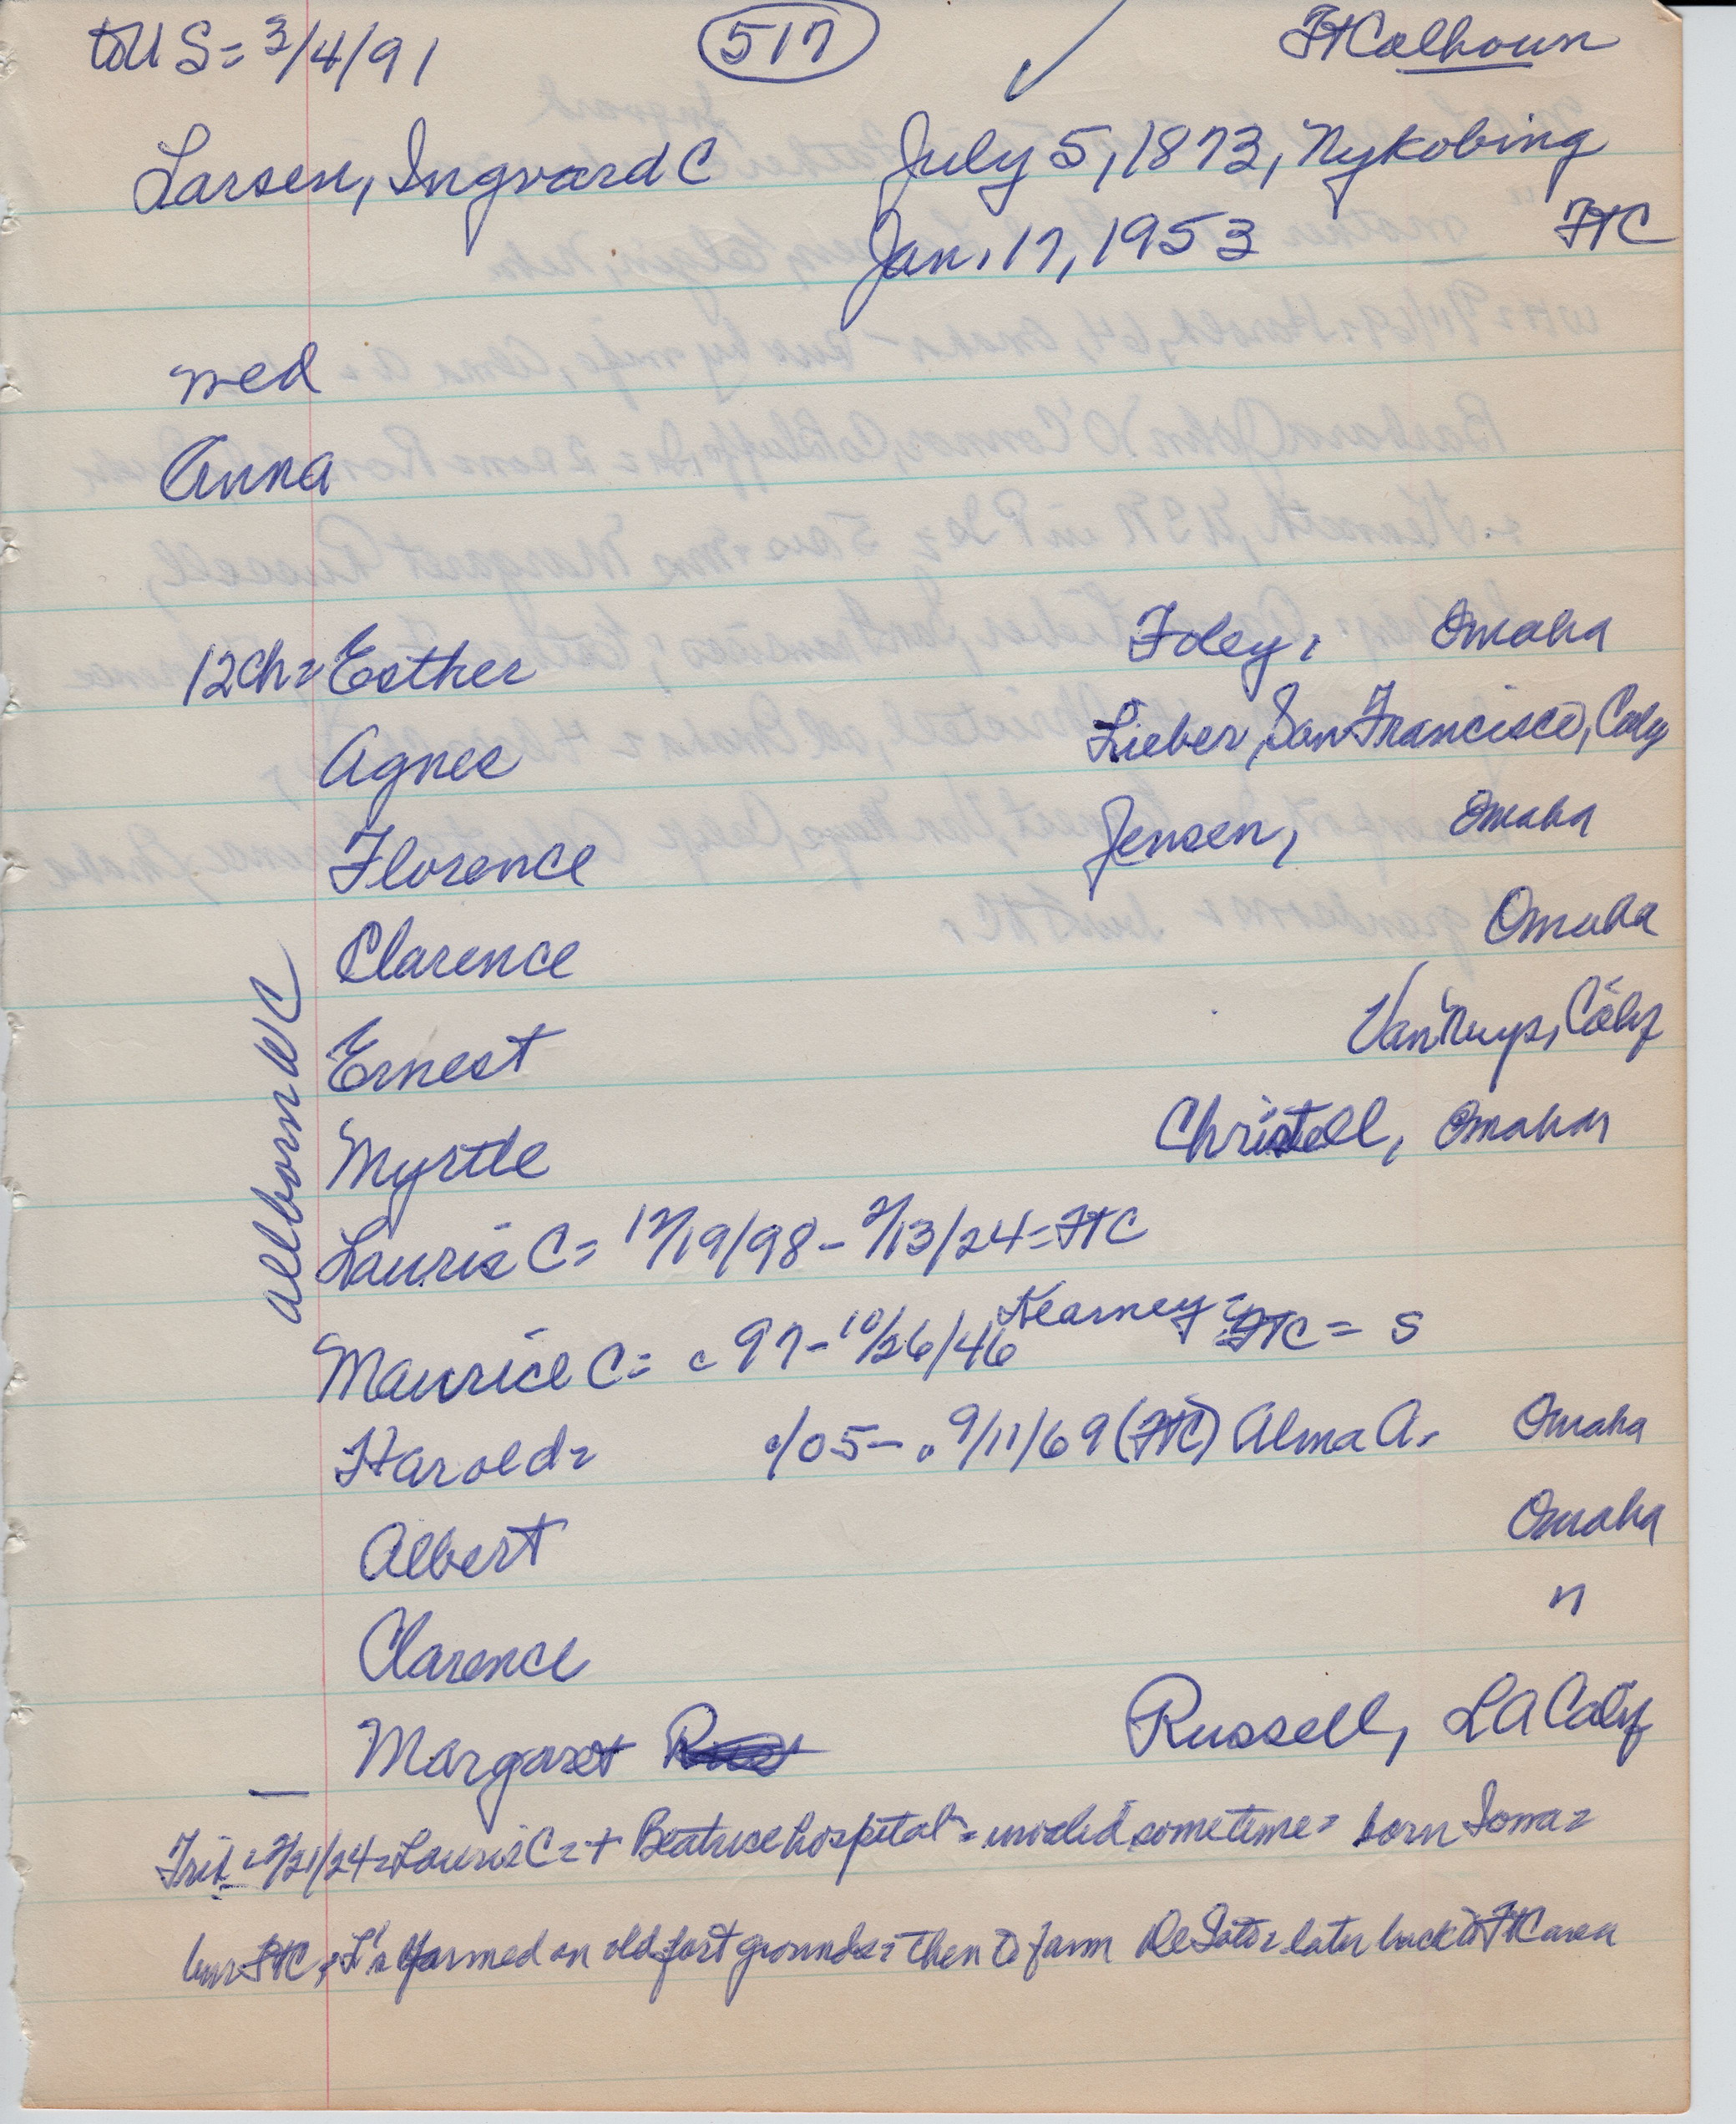 to US = 3/4/91 517 ✓ Ft Calhoun
Larsen, Ingvard C July 5, 1873, Nykobing
Jan. 17, 1953 FtC
med
Anna
12ch = Esther Foley, Omaha
Agnes Lieber, San Francisco, Calif
Florence Jensen, Omaha
Clarence Omaha
Ernest Van Nuys, Calif
Myrtle Christell, Omaha
all born WC
Lauris C = 12/19/98 - 2/13/24 = FtC
Maurice C = c 97 - 10/26/46 Kearney = FtC = S
Harold = c/05 - 9/11/69 (FtC) Alma A. Omaha
Albert Omaha
Clarence "
Margaret Russell, LA Calif
Trib = 2/21/24 = Lauris C = + Beatrice hospital = invalid sometime = born Iowa =
bur FtC, L's farmed on old fort grounds = then to farm DeSoto = later back to FtC area